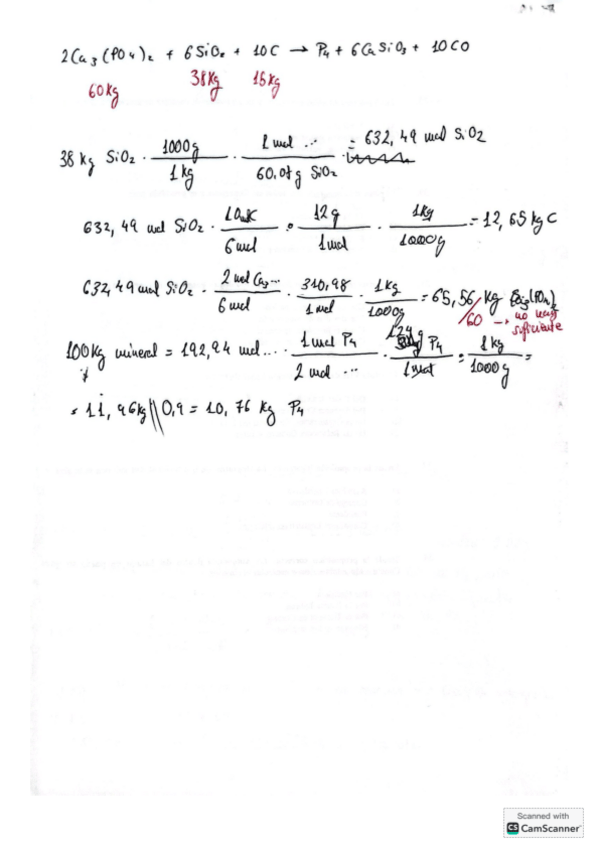 2Ca3(PO4)2 + 6SiO2 + 10C → P4 + 6CaSiO3 + 10CO
60kg 38kg 16kg
38 kg SiO2 · 1000g / 1kg · 1 mol ... / 60,08g SiO2 = 632,49 mol SiO2
632,49 mol SiO2 · 10 mol C / 6 mol · 12g / 1 mol · 1kg / 1000g = 12,65 kg C
632,49 mol SiO2 · 2 mol Ca3... / 6 mol · 310,98 / 1 mol · 1kg / 1000g = 65,56 kg Ca3(PO4)2
60 → no
suficiente
100kg mineral = 192,94 mol ... · 1 mol P4 / 2 mol ... · 124 g P4 / 1 mol = 1kg / 1000g =
= 11,96kg 0,9 = 10,76 kg P4
Scanned with
CS CamScanner